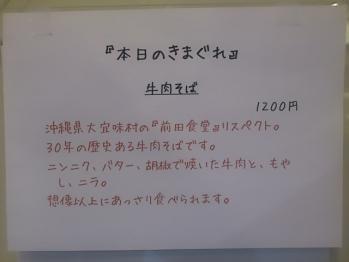 『本日のきまぐれ』
牛肉そば
1200円
沖縄県大宜味村の『前田食堂』リスペクト。
30年の歴史ある牛肉そばです。
ニンニク、バター、胡椒で焼いた牛肉と、もや
し、ニラ。
想像以上にあっさり食べられます。